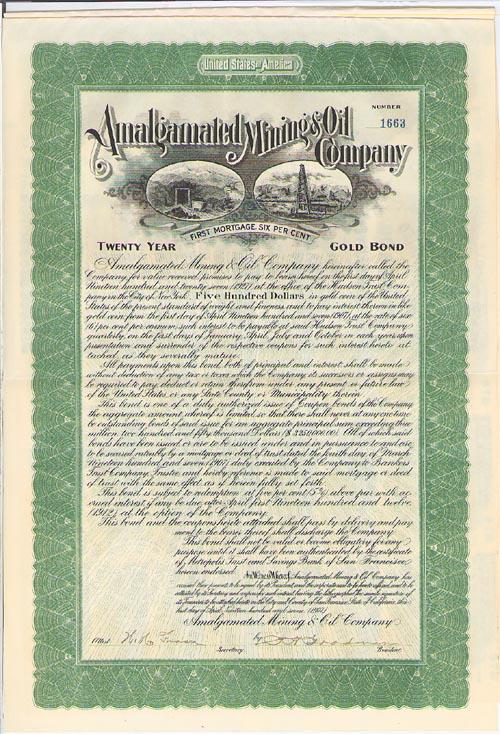 United States of America
NUMBER
1663
Amalgamated Mining & Oil
Company
FIRST MORTGAGE SIX PER CENT
TWENTY YEAR GOLD BOND
Amalgamated Mining & Oil Company hereinafter called the
Company for value received promises to pay to bearer hereof on the first day of April
Nineteen hundred and twenty seven (1927) at the office of the Hudson Trust Com-
pany in the City of New York Five Hundred Dollars in gold coin of the United
States of the present standard of weight and fineness and to pay interest thereon in like
gold coin from the first day of April Nineteen hundred and seven (1907) at the rate of six
(6) per cent per annum, such interest to be payable at said Hudson Trust Company
quarterly, on the first days of January, April, July and October in each year upon
presentation and surrender of the respective coupons for such interest hereto at-
tached, as they severally mature.
All payments upon this bond, both of principal and interest shall be made
without deduction of any tax or taxes which the Company its successors or assigns may
be required to pay, deduct or retain therefrom under any present or future law
of the United States, or any State County or Municipality therein.
This bond is one of a duly authorized issue of Coupon bonds of the Company
the aggregate amount whereof is limited so that there shall never at any one time
be outstanding bonds of said issue for an aggregate principal sum exceeding three
million, two hundred and fifty thousand Dollars ($3250000.00). All of which said
bonds have been issued or are to be issued under and in pursuance to and are
to be secured ratably by a mortgage or deed of trust dated the fourth day of March
Nineteen hundred and seven (1907) duly executed by the Company to Bankers
Trust Company, Trustee and hereby reference is made to said mortgage or deed
of trust with the same effect as if herein fully set forth.
This bond is subject to redemption at five per cent (5%) above par with ac-
crued interest if any be due after April first Nineteen hundred and twelve
(1912) at the option of the Company.
This bond and the coupons hereto attached shall pass by delivery and pay-
ment to the bearer thereof shall discharge the Company.
This bond shall not be valid or become obligatory for any
purpose until it shall have been authenticated by the certificate
of Metropolis Trust and Savings Bank of San Francisco
hereon endorsed.
In Witness Whereof, Amalgamated Mining & Oil Company has
caused these presents to be signed by its President, and its corporate seal to be hereto affixed, and to be
attested by its Secretary and coupons for such interest bearing the lithographed fac simile signature of
its Treasurer to be attached hereto in the City and County of San Francisco, State of California, this
first day of April Nineteen hundred and seven (1907)
Amalgamated Mining & Oil Company
Attest by
Secretary. President.